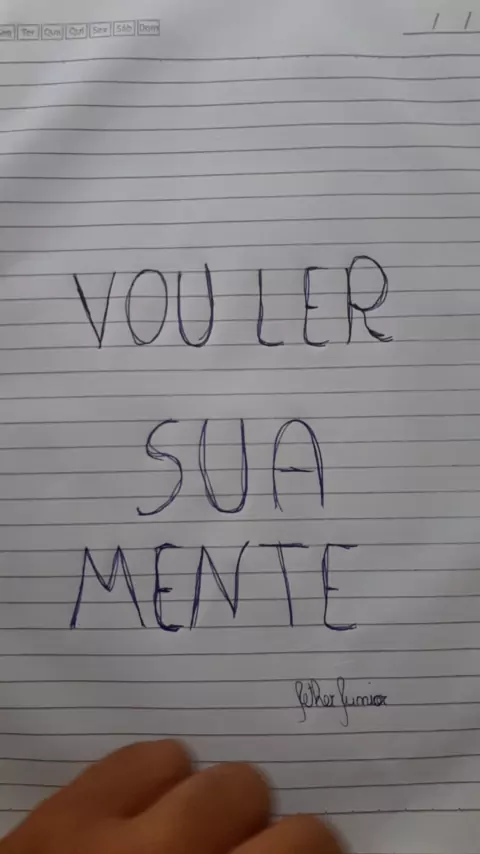 Ter Qua Qui Sex Sáb Dom
/ /
VOU LER
SUA
MENTE
Junior